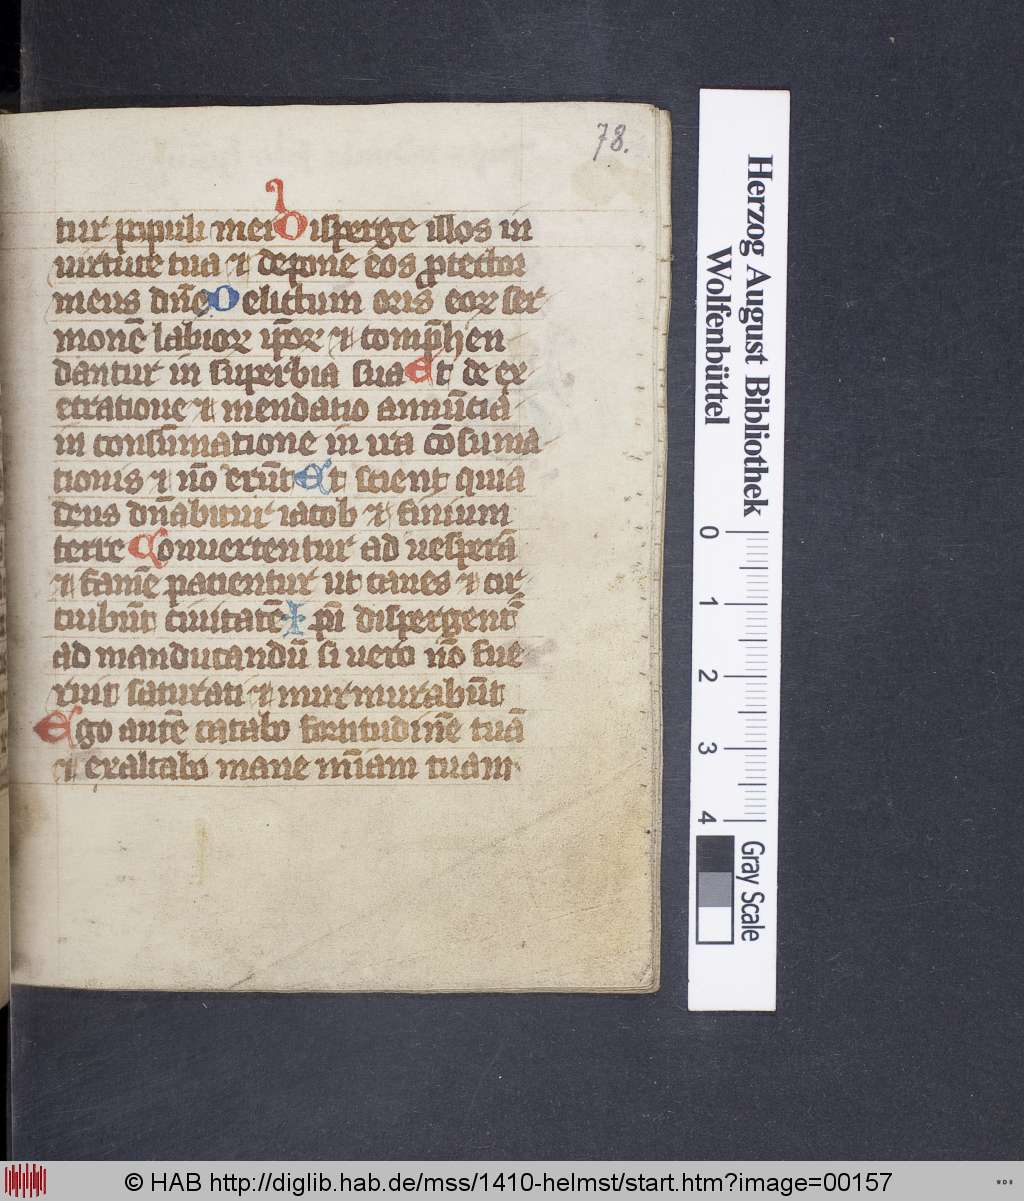 78.
tur populi mei Disperge illos in
uirtute tua et depone eos protector
meus dn̄e Delictum oris eor ser
monē labior ip̄or et comp̄hen
dantur in superbia sua Et de ex
ecratione et mendatio annūcia
in consūmatione in ira cōsuma
tionis et nō erūt Et scient quia
deus dn̄abitur iacob et finium
terre Conuertentur ad uesperā
et famē patientur ut canes et cir
cuibūt ciuitatē Ip̄i dispergent᷑
ad manducandū si uero nō fue
rint saturati et murmurabūt
Ego autē cātabo fortitudinē tuā
et exaltabo mane m̄iam tuam
Herzog August Bibliothek
Wolfenbüttel
0 1 2 3 4
Gray Scale
© HAB http://diglib.hab.de/mss/1410-helmst/start.htm?image=00157